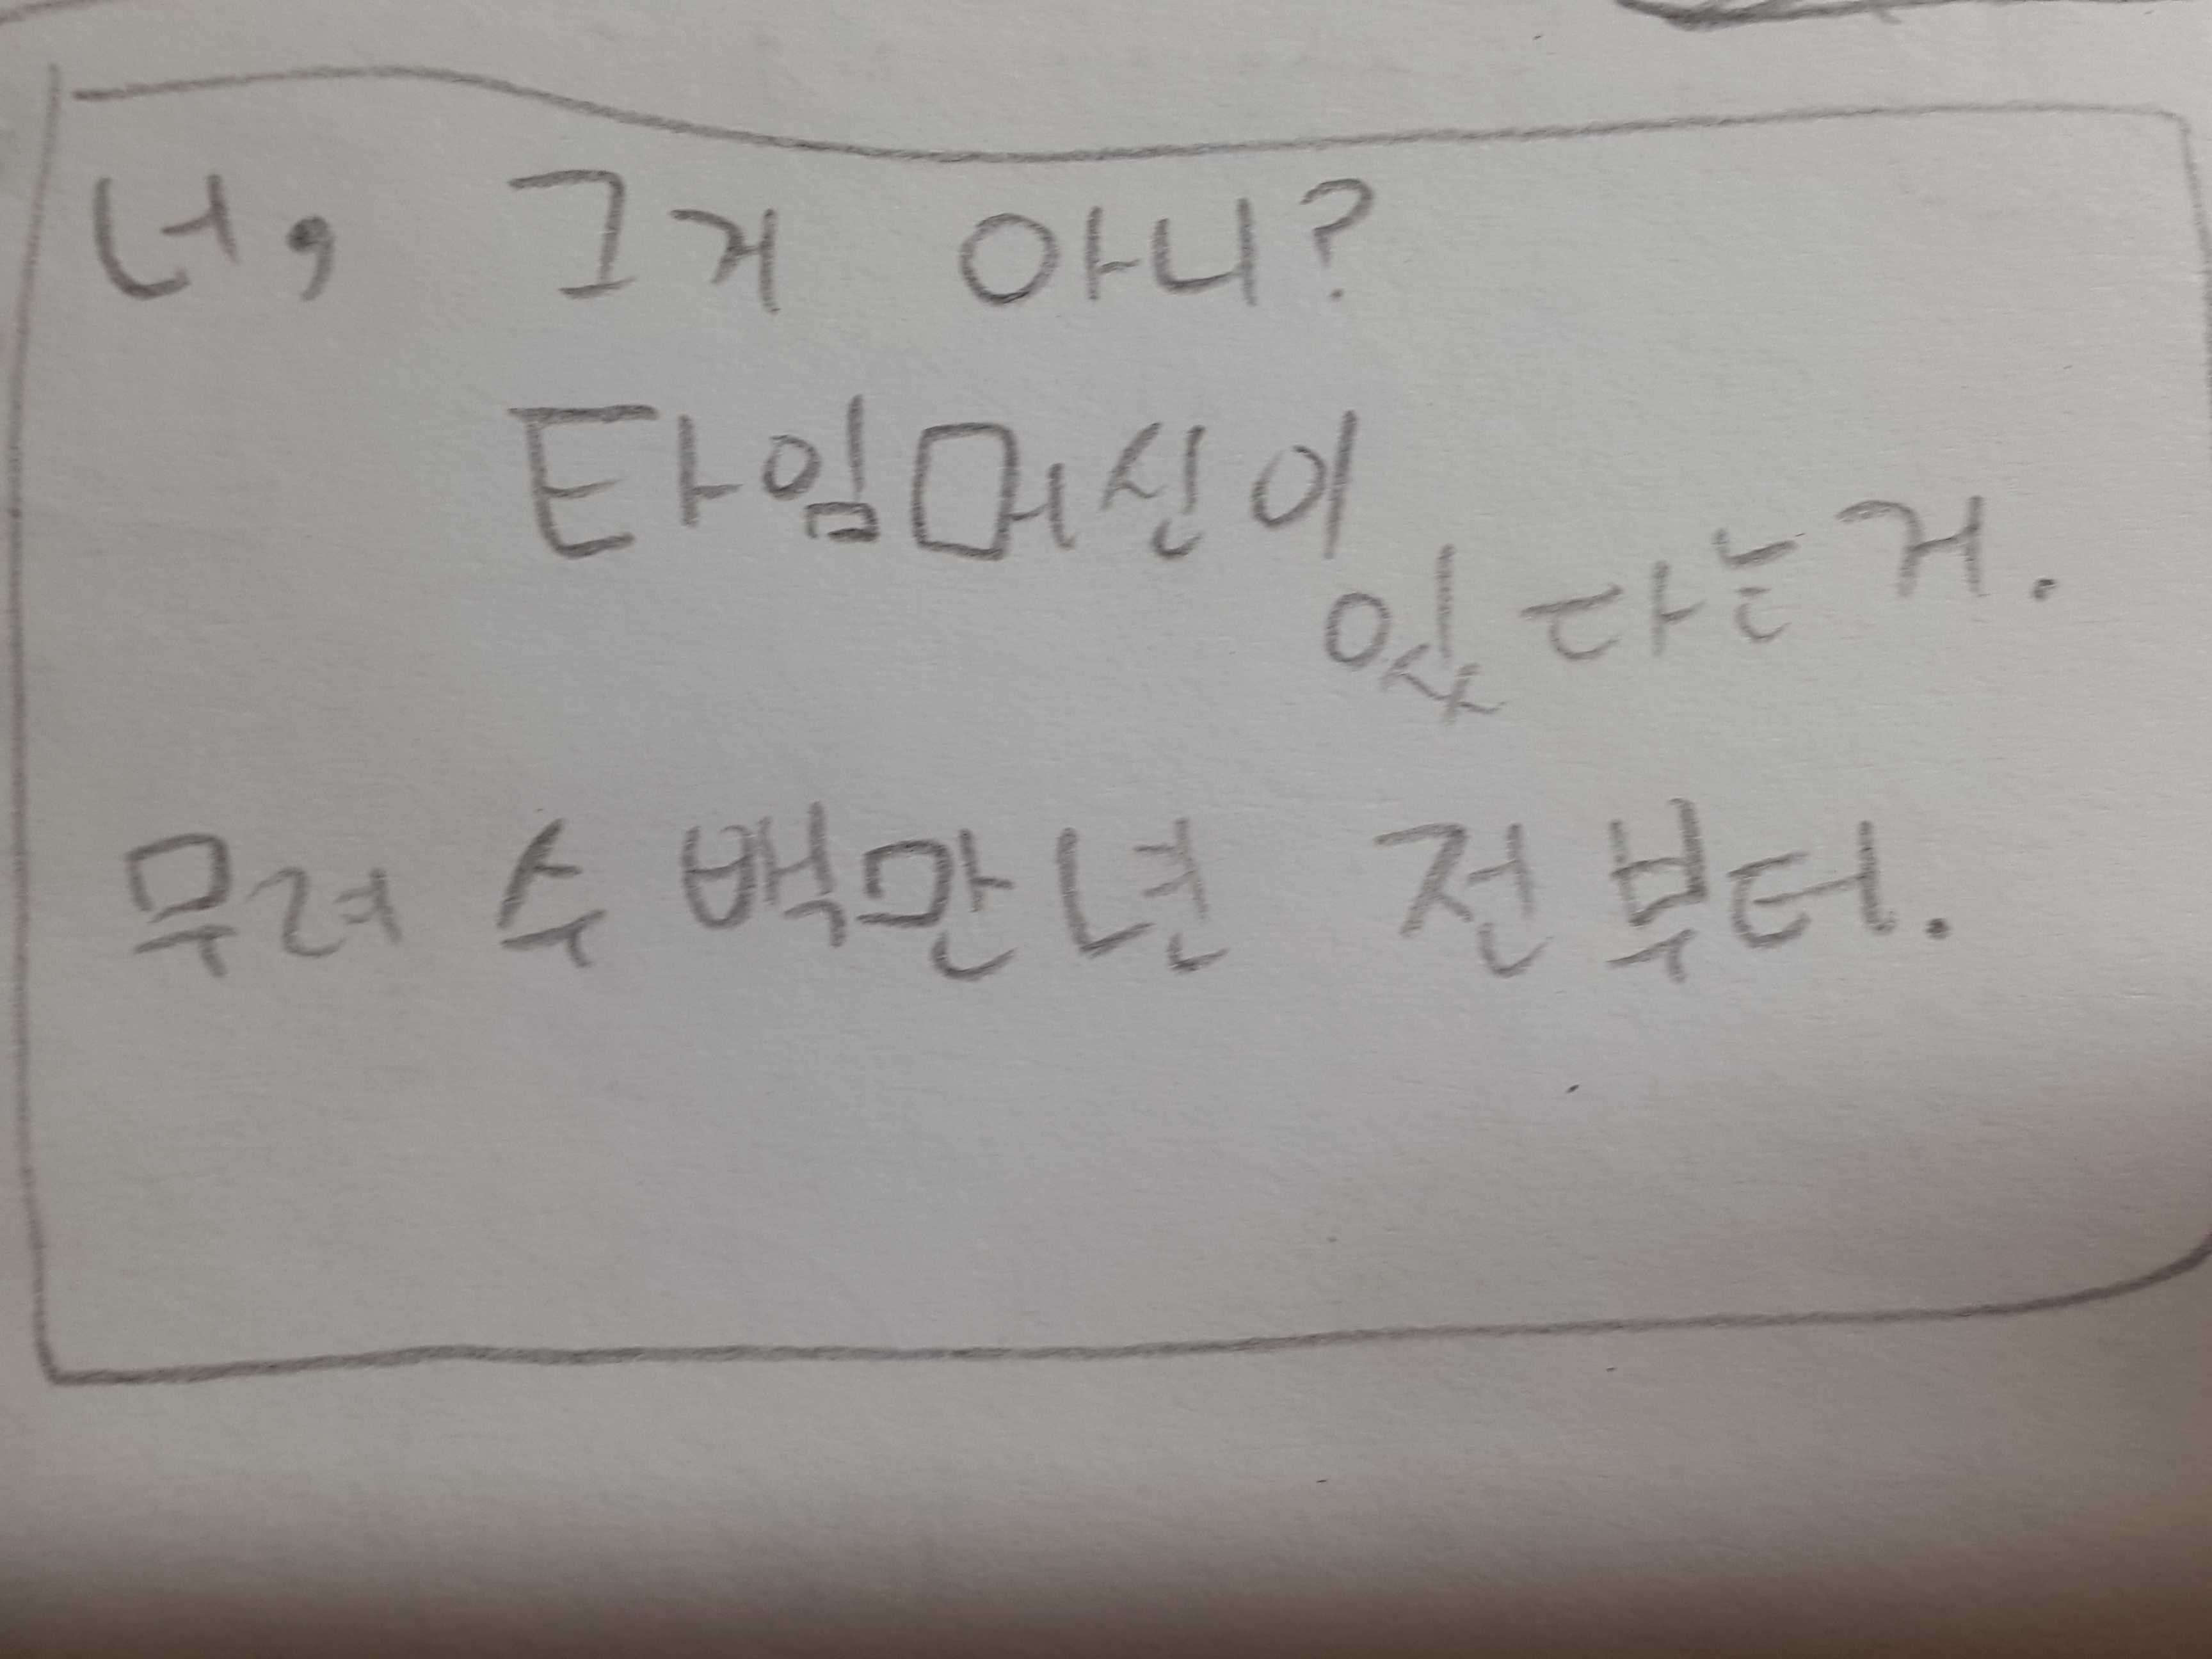 너, 그거 아니?
타임머신이
있다는 거.
무려 수 백만년 전부터.